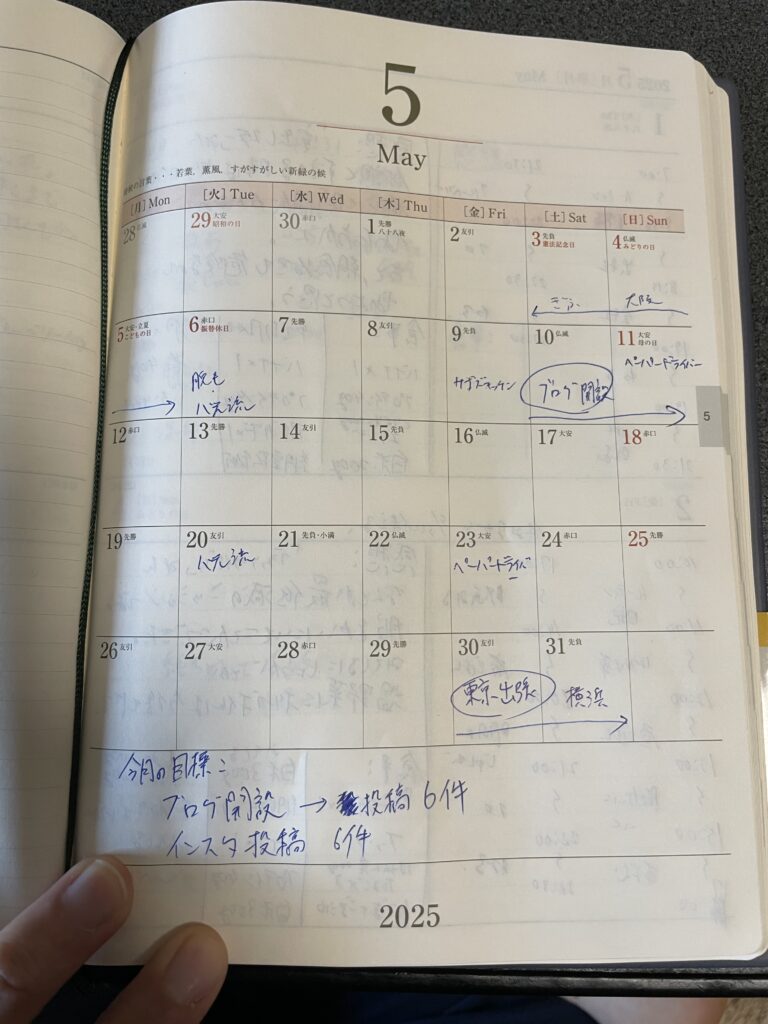 5
May
若葉，薫風，すがすがしい新緑の候
[月] Mon [火] Tue [水] Wed [木] Thu [金] Fri [土] Sat [日] Sun
28 仏滅 29 大安 昭和の日 30 赤口 1 先勝 八十八夜 2 友引 3 先負 憲法記念日 4 仏滅 みどりの日
大阪
5 大安・立夏 こどもの日 6 赤口 振替休日 7 先勝 8 友引 9 先負 10 仏滅 11 大安 母の日
脱毛 ブログ開設 ペーパードライバー
5
12 赤口 13 先勝 14 友引 15 先負 16 仏滅 17 大安 18 赤口
19 先勝 20 友引 21 先負・小満 22 仏滅 23 大安 24 赤口 25 先勝
ペーパードライバー
26 友引 27 大安 28 赤口 29 先勝 30 友引 31 先負
東京出張 横浜
今月の目標：
ブログ開設 → 投稿 6件
インスタ投稿 6件
2025